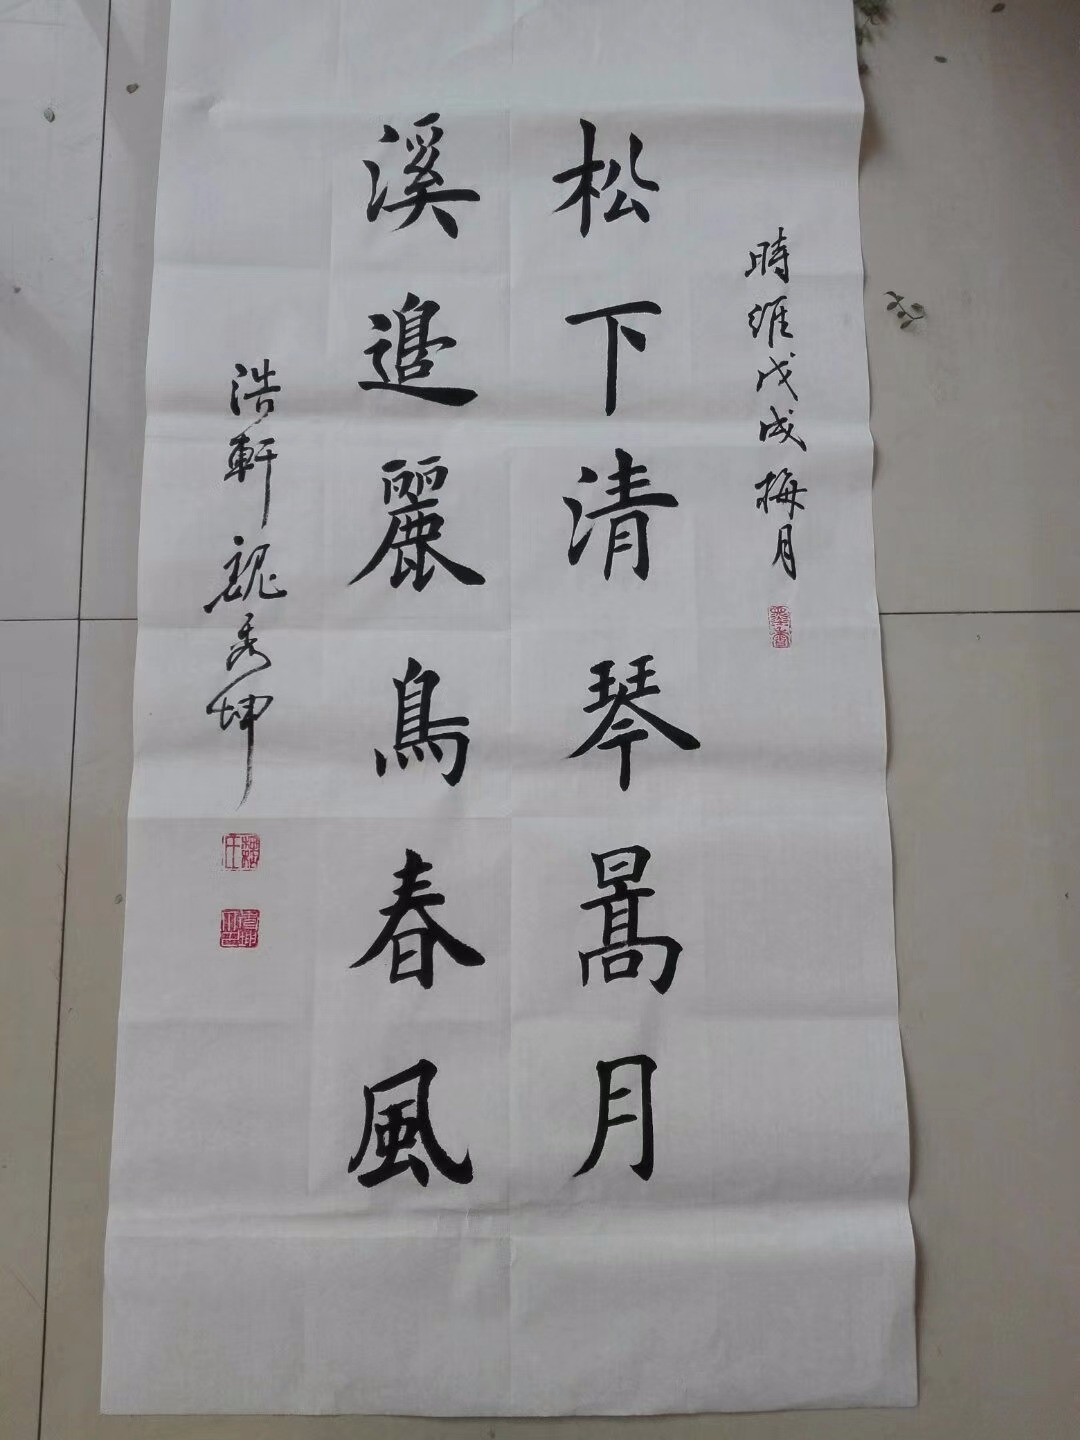 時維戊戌梅月
墨香
松下清琴暠月
溪邊麗鳥春風
浩軒魏秀坤